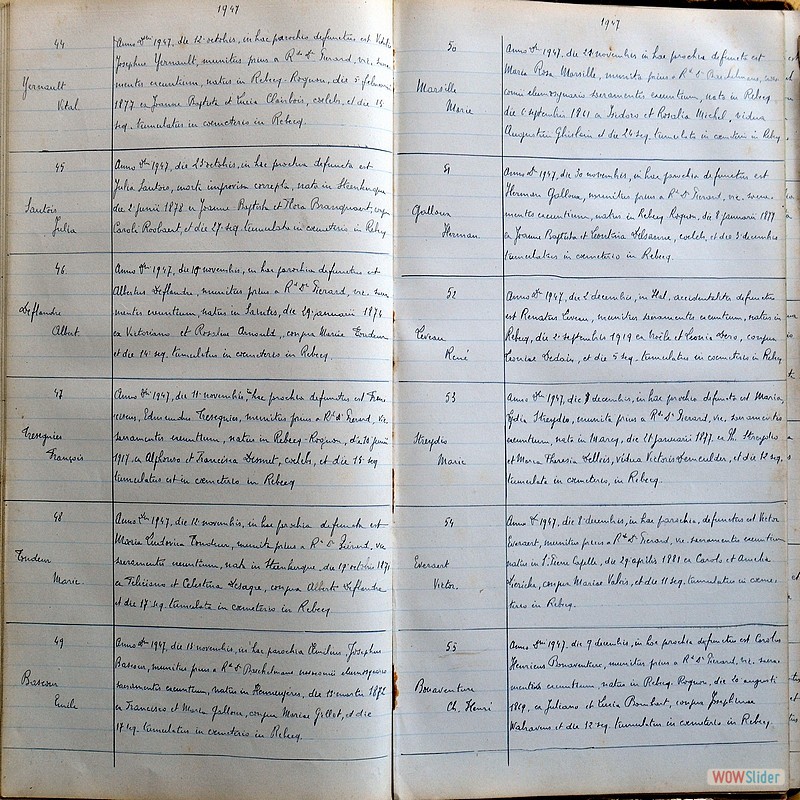 1947
44
Yernault
Vital
Anno Dni 1947, die 12 octobris, in hac parochia defunctus est Vitalis
Josephus Yernault, munitus prius a Rdo Do Gerard, vic. sacra-
mentis exeuntium, natus in Rebecq-Rognon, die 5 februarii
1877 ex Joanne Baptista et Lucia Clairbois, coelebs, et die 15
seq. tumulatus in coemeterio in Rebecq.
45
Santois
Julia
Anno Dni 1947, die 23 octobris, in hac parochia defuncta est
Julia Santois, morte improvisa correpta, nata in Steenkerque
die 2 junii 1878 ex Joanne-Baptista et Flora Branquart, conjux
Caroli Roobaert, et die 27 seq. tumulata in coemeterio in Rebecq.
46
Deflandre
Albert
Anno Dni 1947, die 10 novembris, in hac parochia defunctus est
Albertus Deflandre, munitus prius a Rdo Do Gerard, vic. sacra-
mentis exeuntium, natus in Saintes, die 29 januarii 1874
ex Victoriano et Rosalia Arnould, conjux Mariae Tondeur
et die 14 seq. tumulatus in coemeterio in Rebecq.
47
Tresegnies
François
Anno Dni 1947, die 11 novembris, in hac parochia defunctus est Fran-
ciscus, Edmundus Tresegnies, munitus prius a Rdo Do Gerard, vic.
sacramentis exeuntium, natus in Rebecq-Rognon, die 30 junii
1917 ex Alphonso et Francisca Desmet, coelebs, et die 15 seq.
tumulatus est in coemeterio in Rebecq
48
Tondeur
Marie
Anno Dni 1947, die 12 novembris, in hac parochia defuncta est
Maria Ludovica Tondeur, munita prius a Rdo Do Gérard, vic.
sacramentis exeuntium, nata in Steenkerque, die 19 octobris 1871
ex Feliciano et Celestina Lesage, conjux Alberti Deflandre
et die 17 seq. tumulata in coemeterio in Rebecq
49
Basseur
Emile
Anno Dni 1947, die 13 novembris, in hac parochia Aemilius Josephus
Basseur, munitus prius a Rdo Do Baechelmans oeconomii eleemosynario
sacramentis exeuntium, natus in Hennuyères, die 13 martii 1872
ex Francisco et Maria Galloux, conjux Mariae Gillot, et die
17 seq. tumulatus in coemeterio in Rebecq.
1947
50
Marsille
Marie
Anno Dni 1947, die 21 novembris, in hac parochia defuncta est
Maria Rosa Marsille, munita prius a Rdo Do Baechelmans,
eleemosynario sacramentis exeuntium, nata in Rebecq
die 6 septembris 1861 ex Isidoro et Rosalia Michel, vidua
Augustini Ghislain et die 24 seq. tumulata in coemeterio in Rebecq
51
Galloux
Herman
Anno Dni 1947, die 30 novembris, in hac parochia defunctus est
Herman Galloux, munitus prius a Rdo Do Gerard, vic. sacra-
mentis exeuntium, natus in Rebecq Rognon, die 8 januarii 1877
ex Joanne Baptista et Leontina Delsanne, coelebs, et die 3 decembris
tumulatus in coemeterio in Rebecq.
52
Liveau
René
Anno Dni 1947, die 2 decembris, in Hal, accidentaliter defunctus
est Renatus Liveau, munitus sacramentis exeuntium, natus in
Rebecq, die 2 septembris 1919 ex Noële et Leonia Dero, conjux
Leoniae Dedain, et die 5 seq. tumulatus in coemeterio in Rebecq
53
Streydio
Marie
Anno Dni 1947, die 8 decembris, in hac parochia defuncta est Maria
Lydia Streydio, munita prius a Rdo Do Gerard, vic. sacramentis
exeuntium, nata in Marcq, die 11 januarii 1877, ex Th. Streydio
et Maria Theresia Dellois, vidua Victoris Demeulder, et die 12 seq.
tumulata in coemeterio, in Rebecq.
54
Everaert
Victor.
Anno Dni 1947, die 8 decembris, in hac parochia, defunctus est Victor
Everaert, munitus prius a Rdo Do Gerard, vic. sacramentis exeuntium
natus in S. Pierre Capelle, die 29 aprilis 1881 ex Carolo et Amelia
Dierickx, conjux Mariae Valois, et die 11 seq. tumulatus in coeme-
terio in Rebecq.
55
Bonaventure
Ch. Henri
Anno Dni 1947, die 9 decembris, in hac parochia defunctus est Carolus
Henricus Bonaventure, munitus prius a Rdo Do Gerard, vic. sacra-
mentis exeuntium, natus in Rebecq-Rognon, die 20 augusti
1869, ex Juliano et Lucia Bombart, conjux Josephinae
Walravens et die 12 seq. tumulatus in coemeterio in Rebecq.
WOWSlider